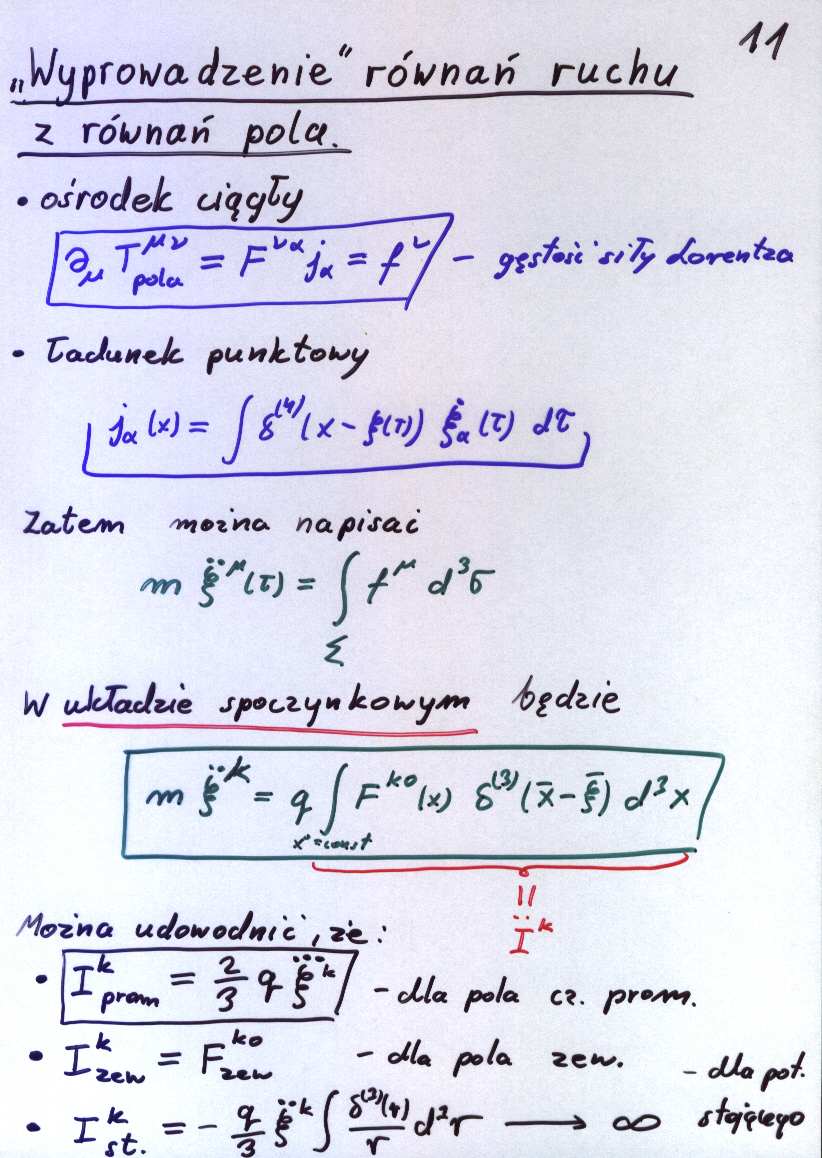 11
„Wyprowadzenie” równań ruchu
z równań pola.
• ośrodek ciągły
∂_μ T^{μν}_{pola} = F^{να} j_α = f^ν – gęstość siły Lorentza
• Ładunek punktowy
j_α(x) = ∫ δ^{(4)}(x - ξ(τ)) ξ̇_α(τ) dτ
Zatem można napisać
m ξ̈^μ(τ) = ∫_Σ f^μ d³σ
W układzie spoczynkowym będzie
m ξ̈^k = q ∫_{x⁰=const} F^{k0}(x) δ^{(3)}(x̄ - ξ̄) d³x
Można udowodnić, że:
=: I^k
• I^k_{prom} = 2/3 q ξ⃛^k – dla pola cz. prom.
• I^k_{zew} = F^{k0}_{zew} – dla pola zew.
• I^k_{st.} = - q/3 ξ̈^k ∫ δ^{(3)}(r)/r d³r → ∞ – dla pot. stojącego